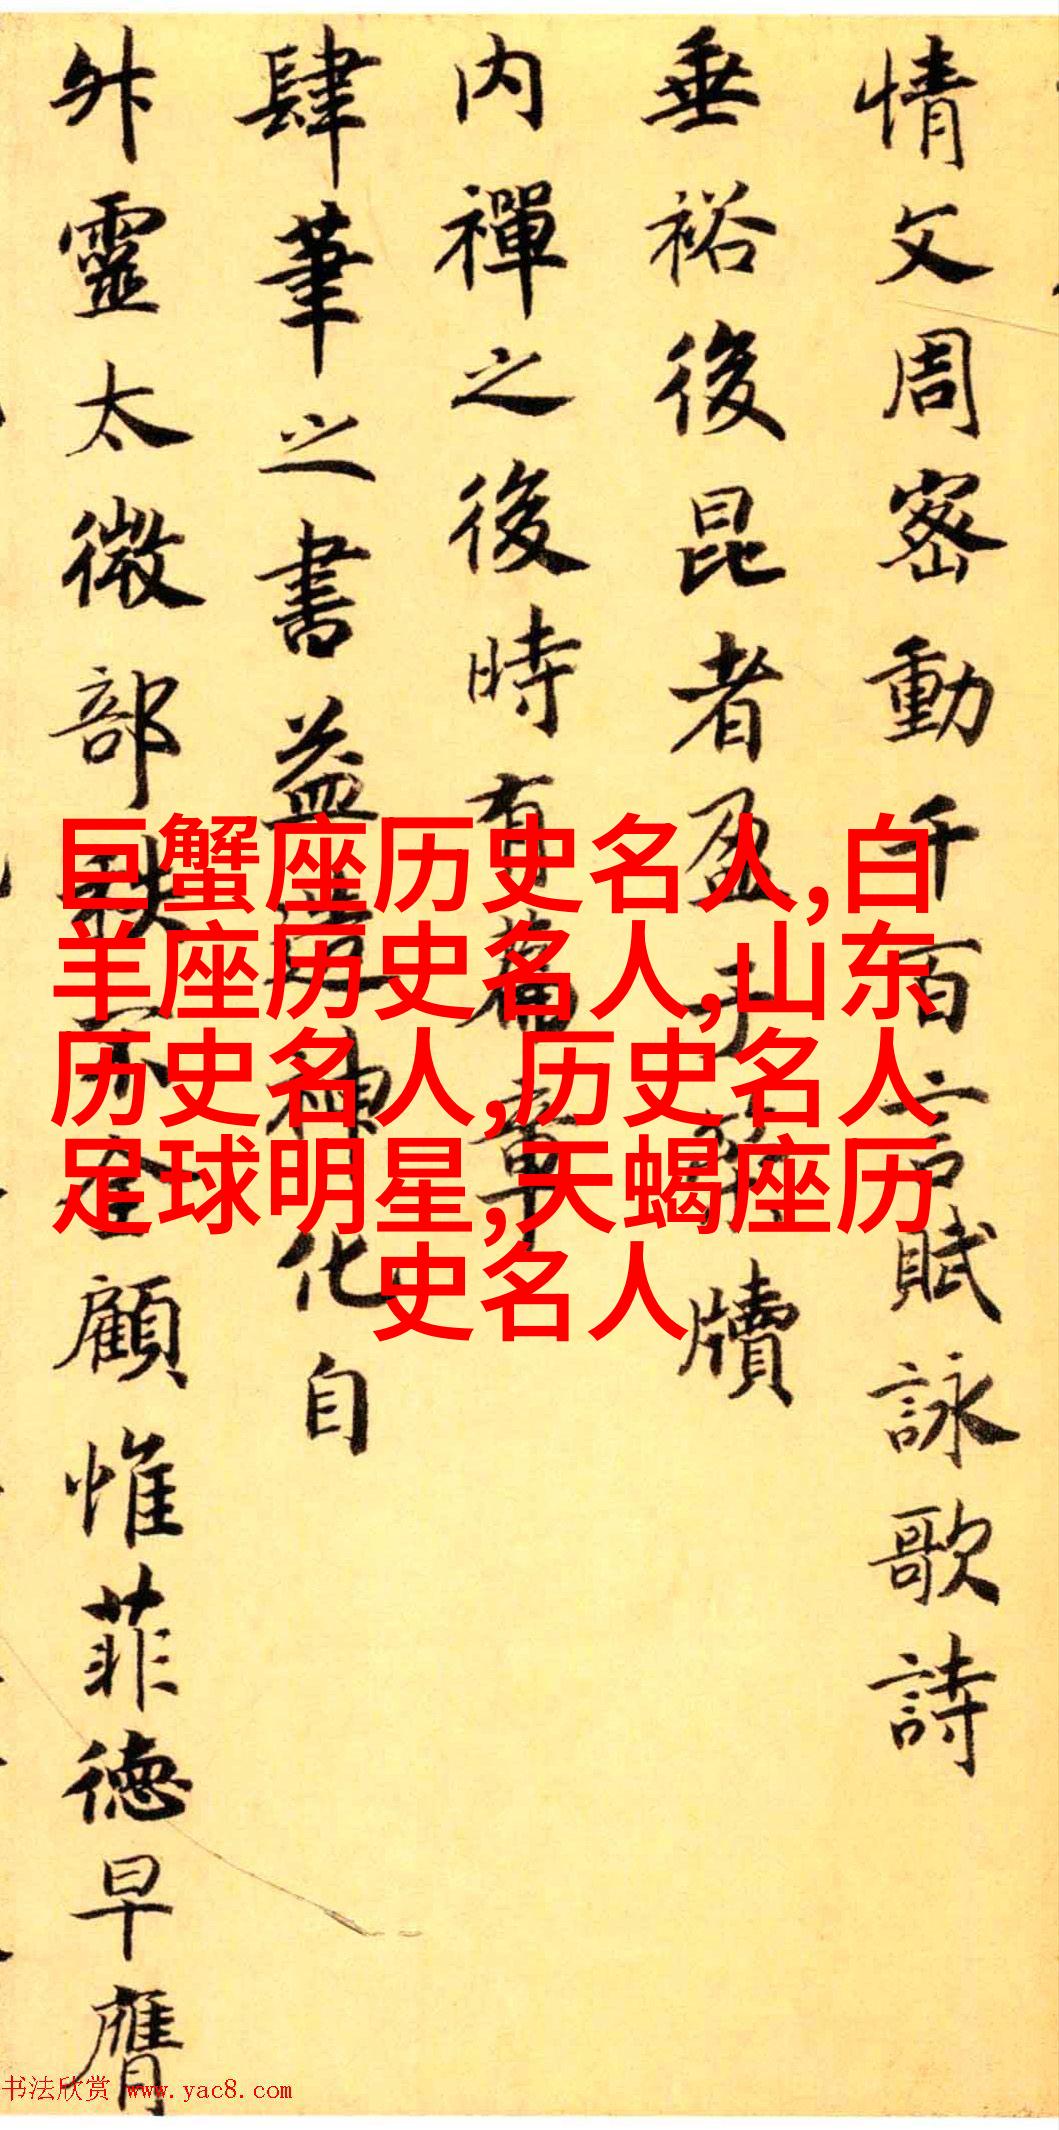 情文周密動千百言賦詠歌詩
垂裕後昆者盈于牘
内禪之後時有篇章
肆筆之書益造神化自
靈太微部秩不全顧惟菲德早膺
巨蟹座历史名人,白
羊座历史名人,山东
历史名人,历史名人
足球明星,天蝎座历
史名人
书法欣赏 www.yac8.com